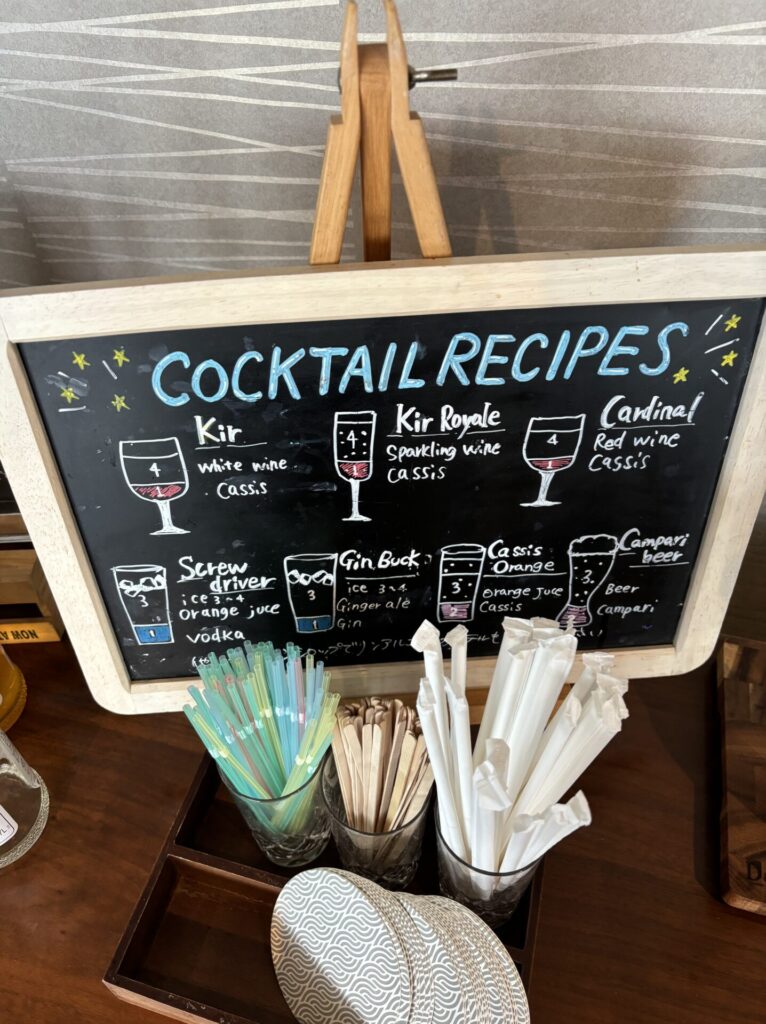 COCKTAIL RECIPES
Kir
white wine
Cassis
4
1
Kir Royale
Sparkling wine
Cassis
4
1
Cardinal
Red wine
Cassis
4
1
Screw
driver
ice 3~4
orange juce
vodka
3
1
Gin Buck
ice 3~4
Ginger ale
Gin
3
1
Cassis
Orange
orange juce
Cassis
3
2
Campari
beer
Beer
Campari
3
1
NOW A